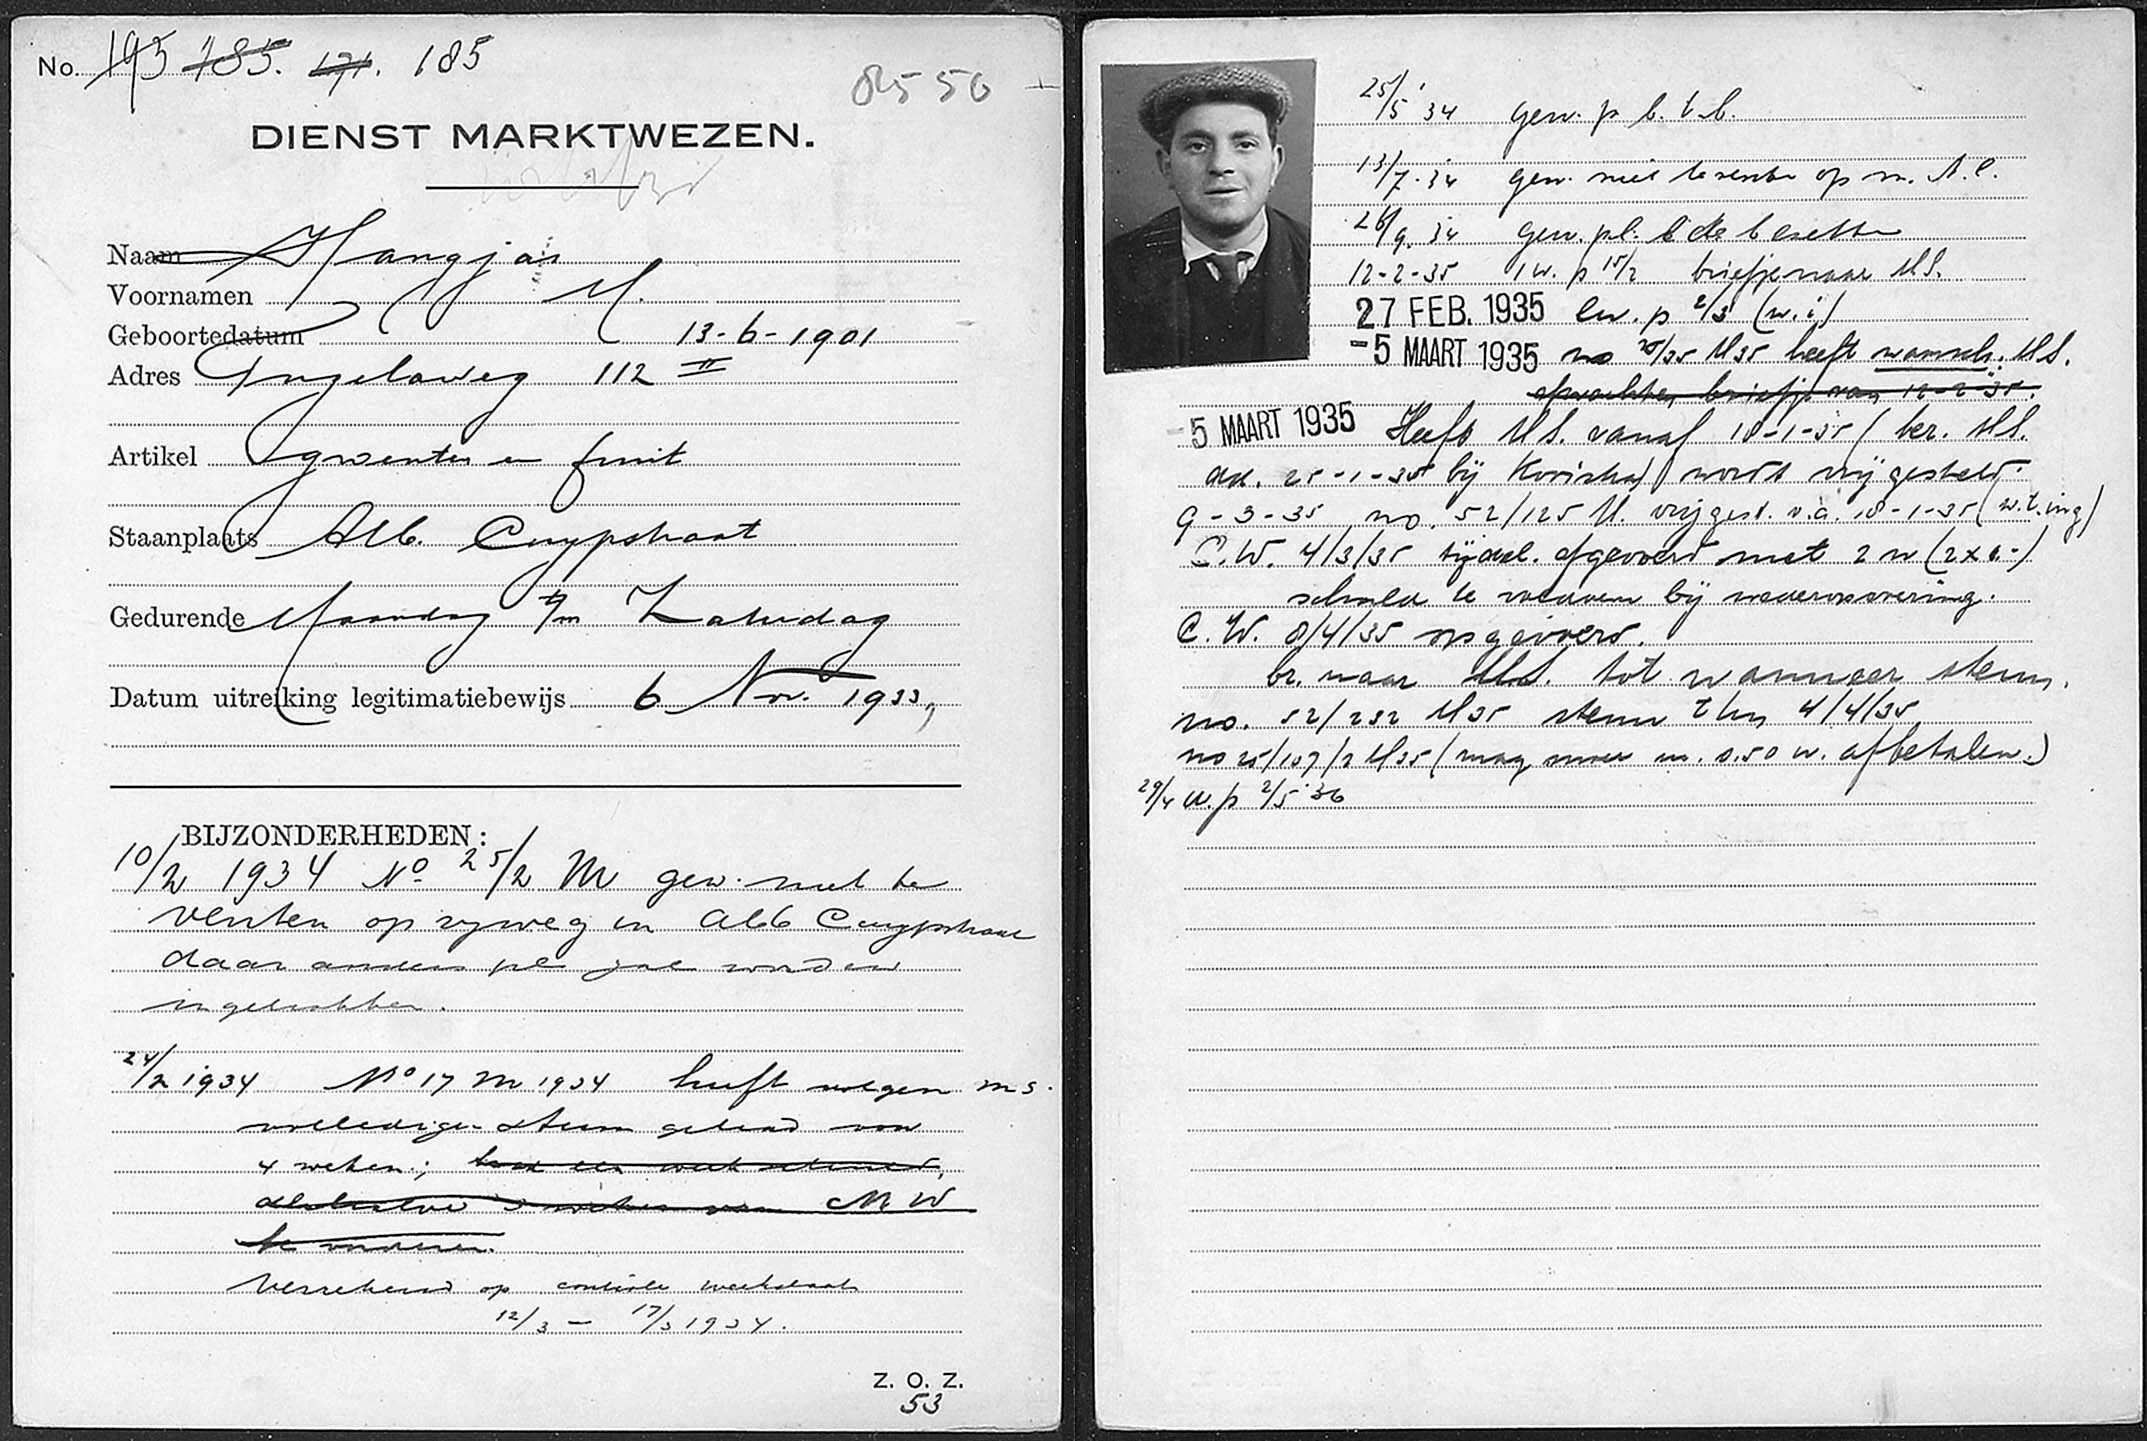 No. 195 185. 171. 185
8550
DIENST MARKTWEZEN.
Naam Hangjas
Voornamen M.
Geboortedatum 13-6-1901
Adres Ingelaweg 112 II
Artikel groenten en fruit
Staanplaats Alb. Cuypstraat
Gedurende Maandag t/m Zaterdag
Datum uitreiking legitimatiebewijs 6 Nov. 1933,
BIJZONDERHEDEN:
10/2 1934 No 25/2 M gew. niet te
venten op rijweg in Alb Cuypstraat
daar anders pl zal worden
ingetrokken.
24/2 1934 No 17 M 1934 heeft wegen M S.
volledigen steun gehad voor
4 weken;
M W
te vorderen.
Verrekend op controle weekstaat
12/3 – 17/3 1934.
Z. O. Z.
53
25/5 '34 gew. p b. t. b.
13/7 '34 gew. niet te venten op m. A.C.
26/9 '34 gew. pl. te bezetten
12-2-35 w. p 15/2 briefje naar M S.
27 FEB. 1935 w. p 2/3 (w. i)
-5 MAART 1935 no M 35 heeft M S.
briefje van 12-2-35.
-5 MAART 1935 Heeft M S. vanaf 10-1-35 (ber. M S.
dd. 25-1-35 bij wordt vrijgesteld.
9-3-35 no. 52/125 M. vrijgest. v.a. 10-1-35 (w.t. ing)
C. W. 4/3/35 tijdel. afgevoerd met 2 w (2x
schuld te vorderen bij wederopvoering.
C. W. 8/4/35 opgevoerd.
br. naar M.S. tot wanneer steun.
no. 52/232 M 35 steun t/m 4/4/35
no 25/107/2 M 35 (mag met m. 0.50 w. afbetalen.)
29/4 w. p 2/5 '36